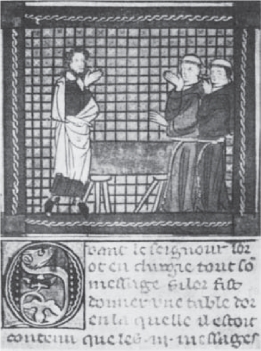 Quant le seignour lor
ot enchargie tout sō
message si ler fist
donner vne table dor
en la quelle il estoit
contenu que les .iii. messages